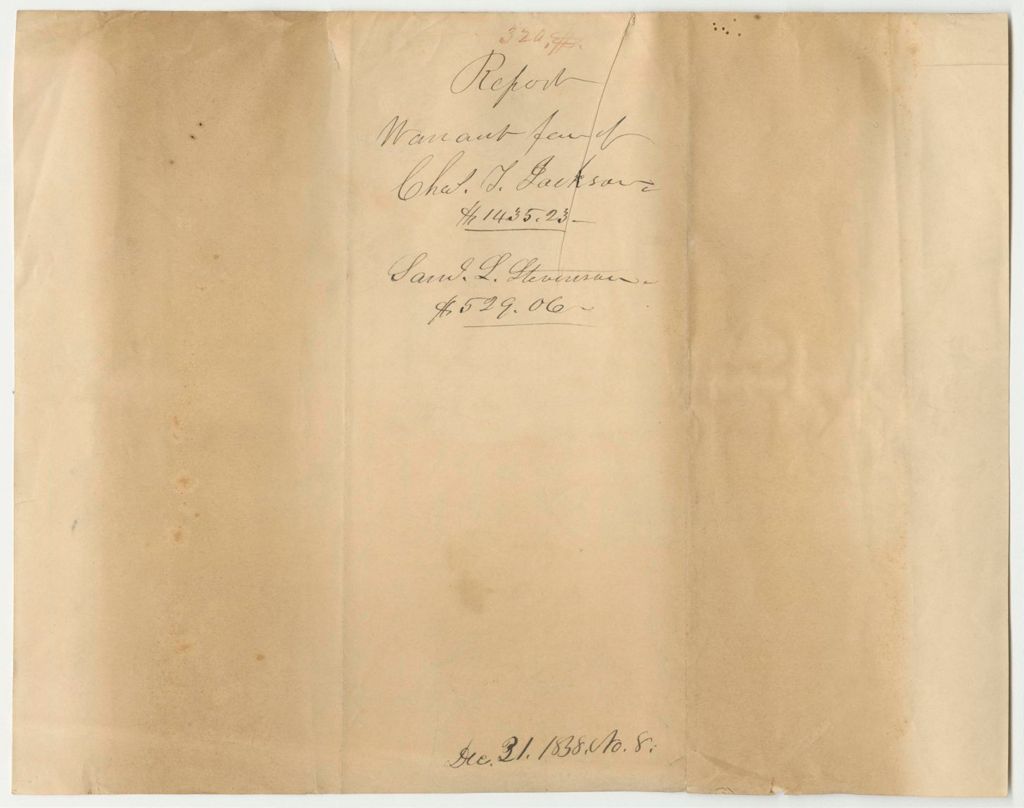 320.
Report
Warrant fav of
Chas. T. Jackson
$1435.23
Saml. L. Stevenson
$529.06
Dec. 31. 1838. No. 8.